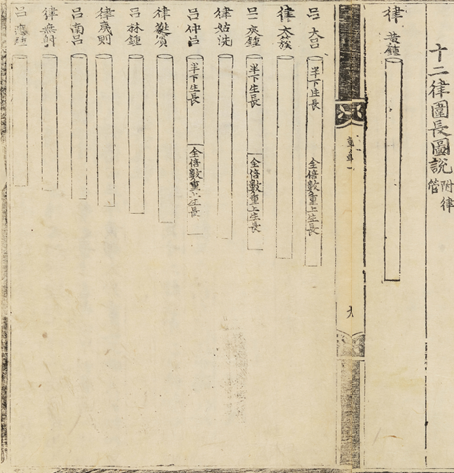 十二律圍長圖說附律管
律 黃鐘
呂 大呂
半下生長
全倍數重上生長
律 太簇
呂 夾鐘
半下生長
全倍數重上生長
律 姑洗
呂 仲呂
半下生長
全倍數重上生長
律 蕤賓
呂 林鐘
律 夷則
呂 南呂
律 無射
呂 應鐘